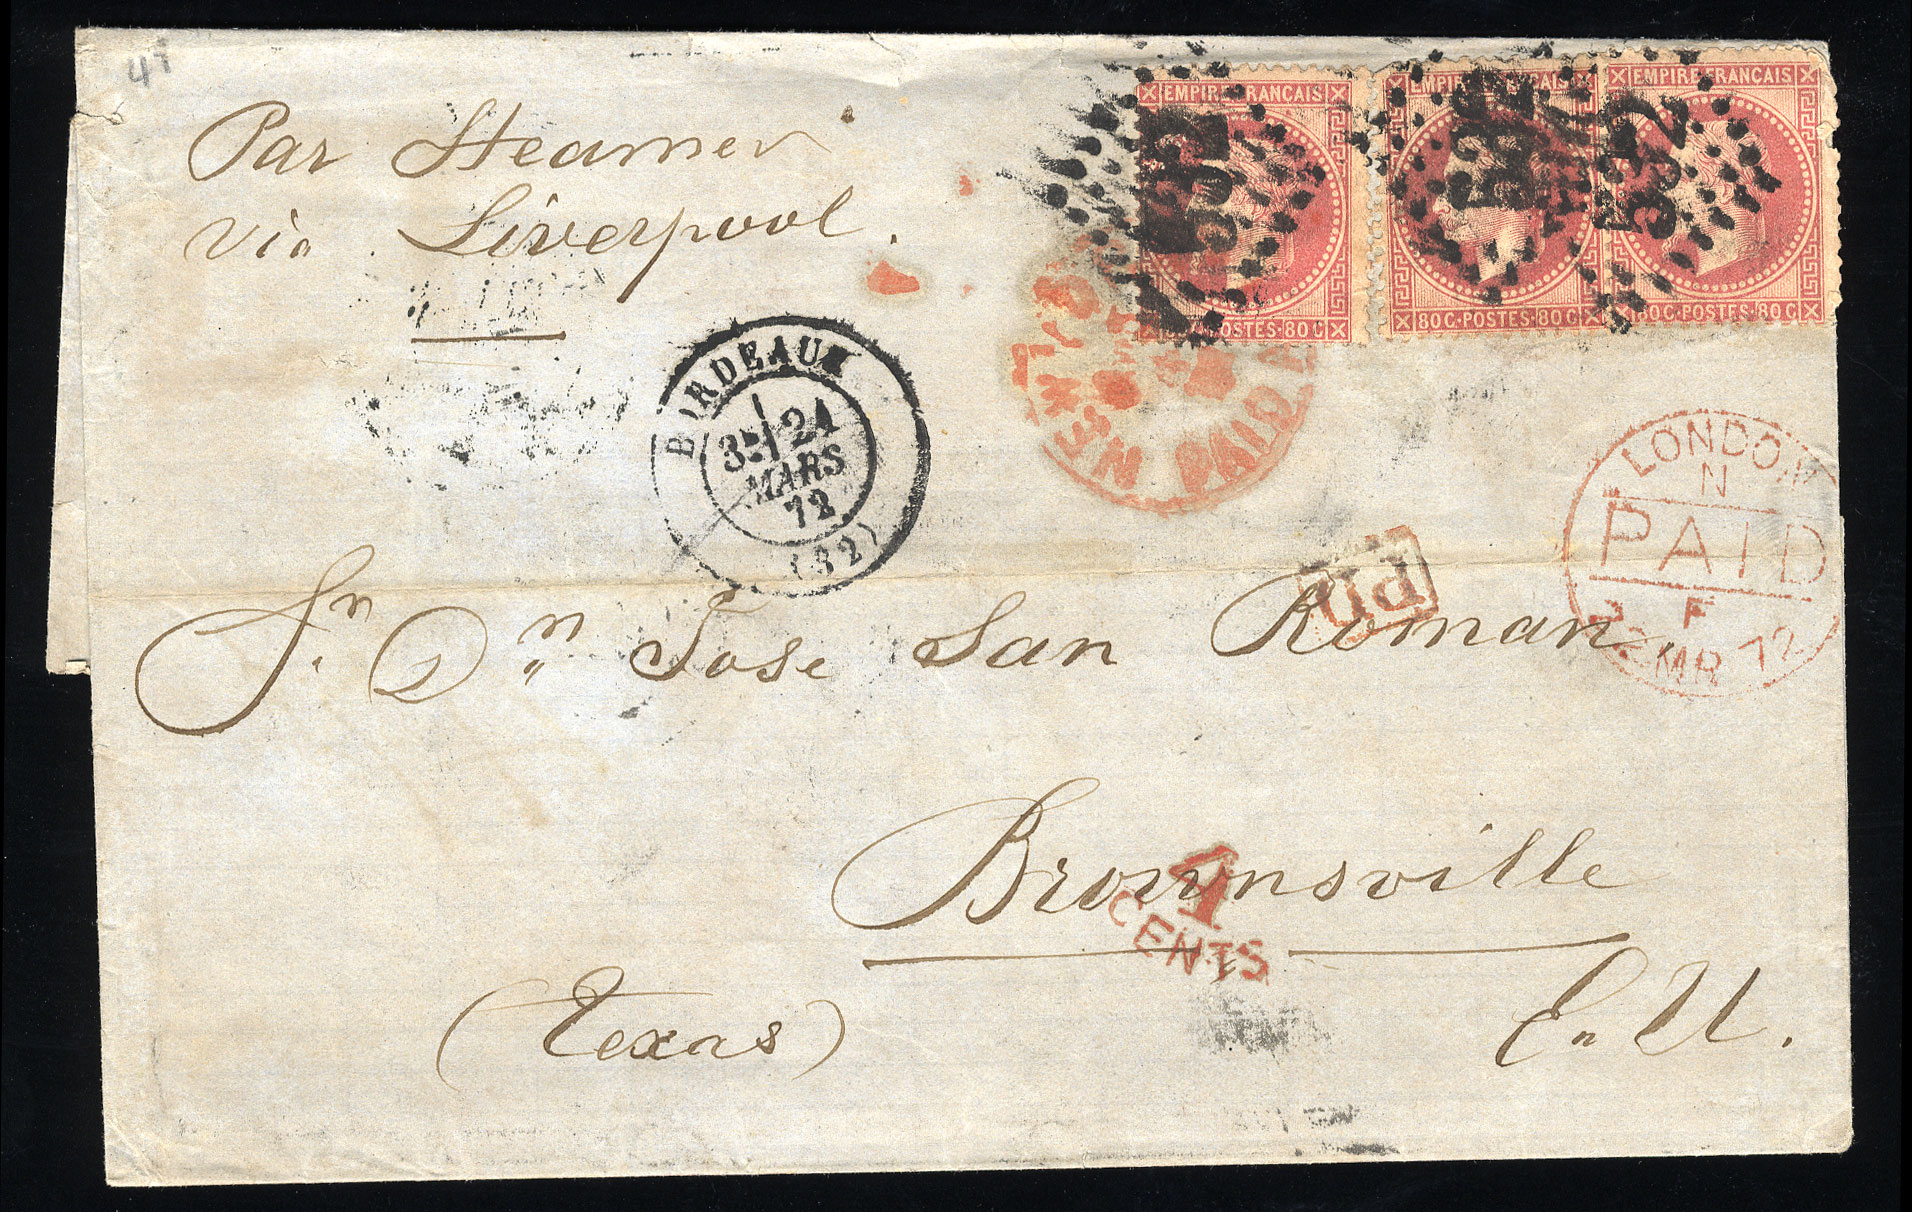 41
Par Steamer
via Liverpool.
EMPIRE FRANCAIS
80 C
EMPIRE FRANCAIS
80 C·POSTES·80 C
532
EMPIRE FRANCAIS
80 C·POSTES·80 C
532
BORDEAUX
3E 21
MARS
72
(32)
NEW
PAID
LONDON
N
PAID
F
MR 72
PD
Sr. Dn. Jose San Roman.
Brownsville
4
CENTS
(Texas) En U.